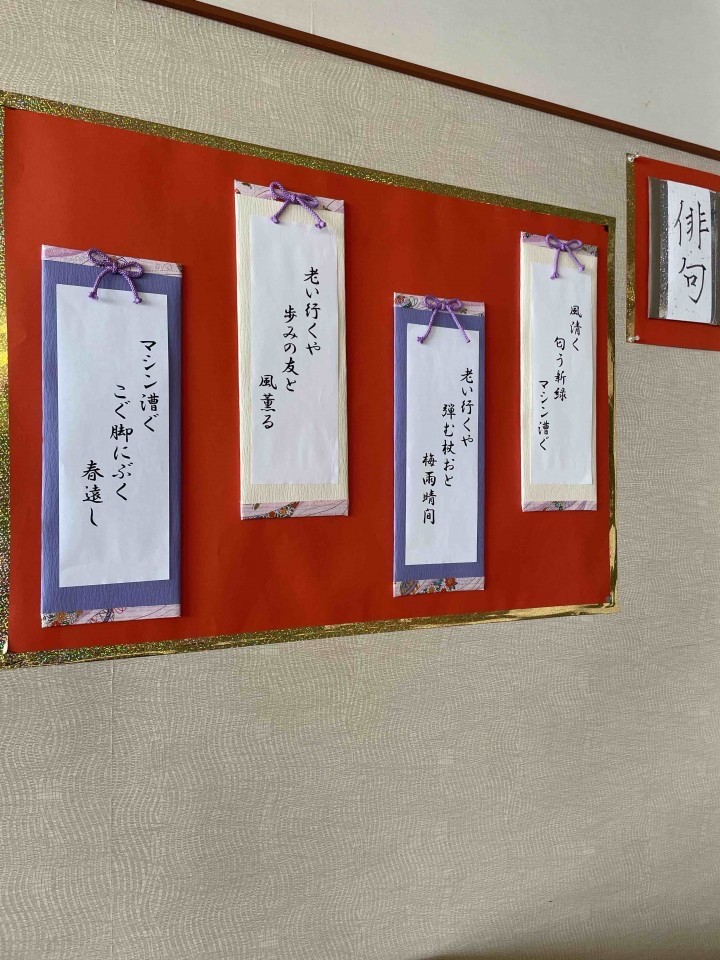 俳句
風清く
匂う新緑
マシン漕ぐ
老い行くや
弾む杖おと
梅雨晴間
老い行くや
歩みの友と
風薫る
マシン漕ぐ
こぐ脚にぶく
春遠し